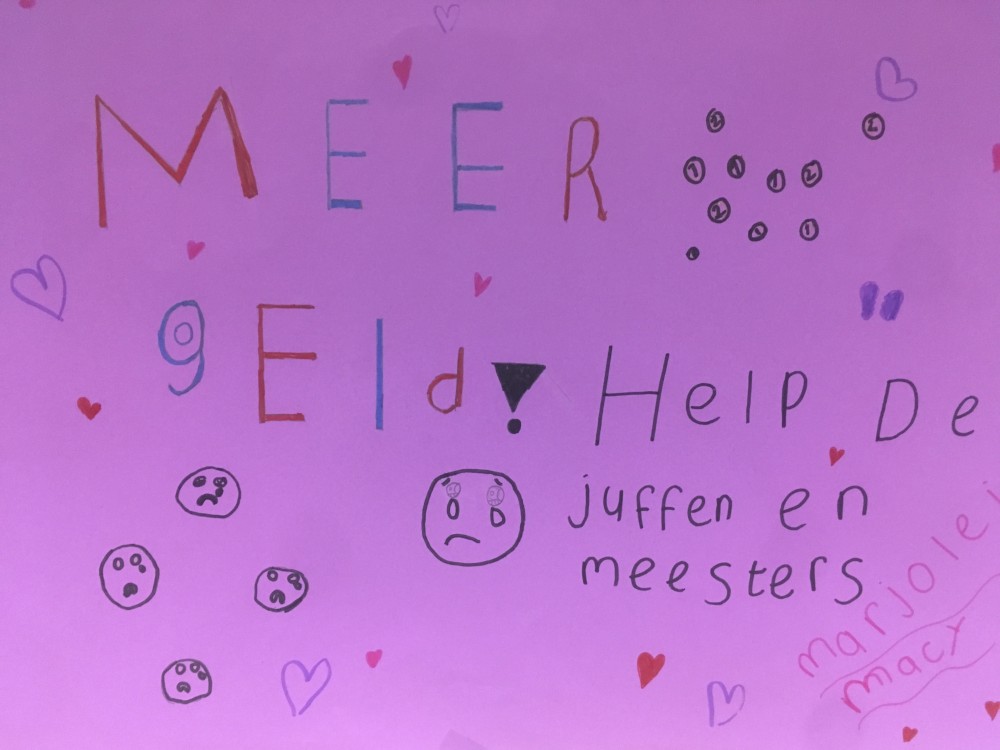 MEER
2
2
1 1 1 2
2
1 1
gEld! Help De
juffen en
meesters
marjolei
macy